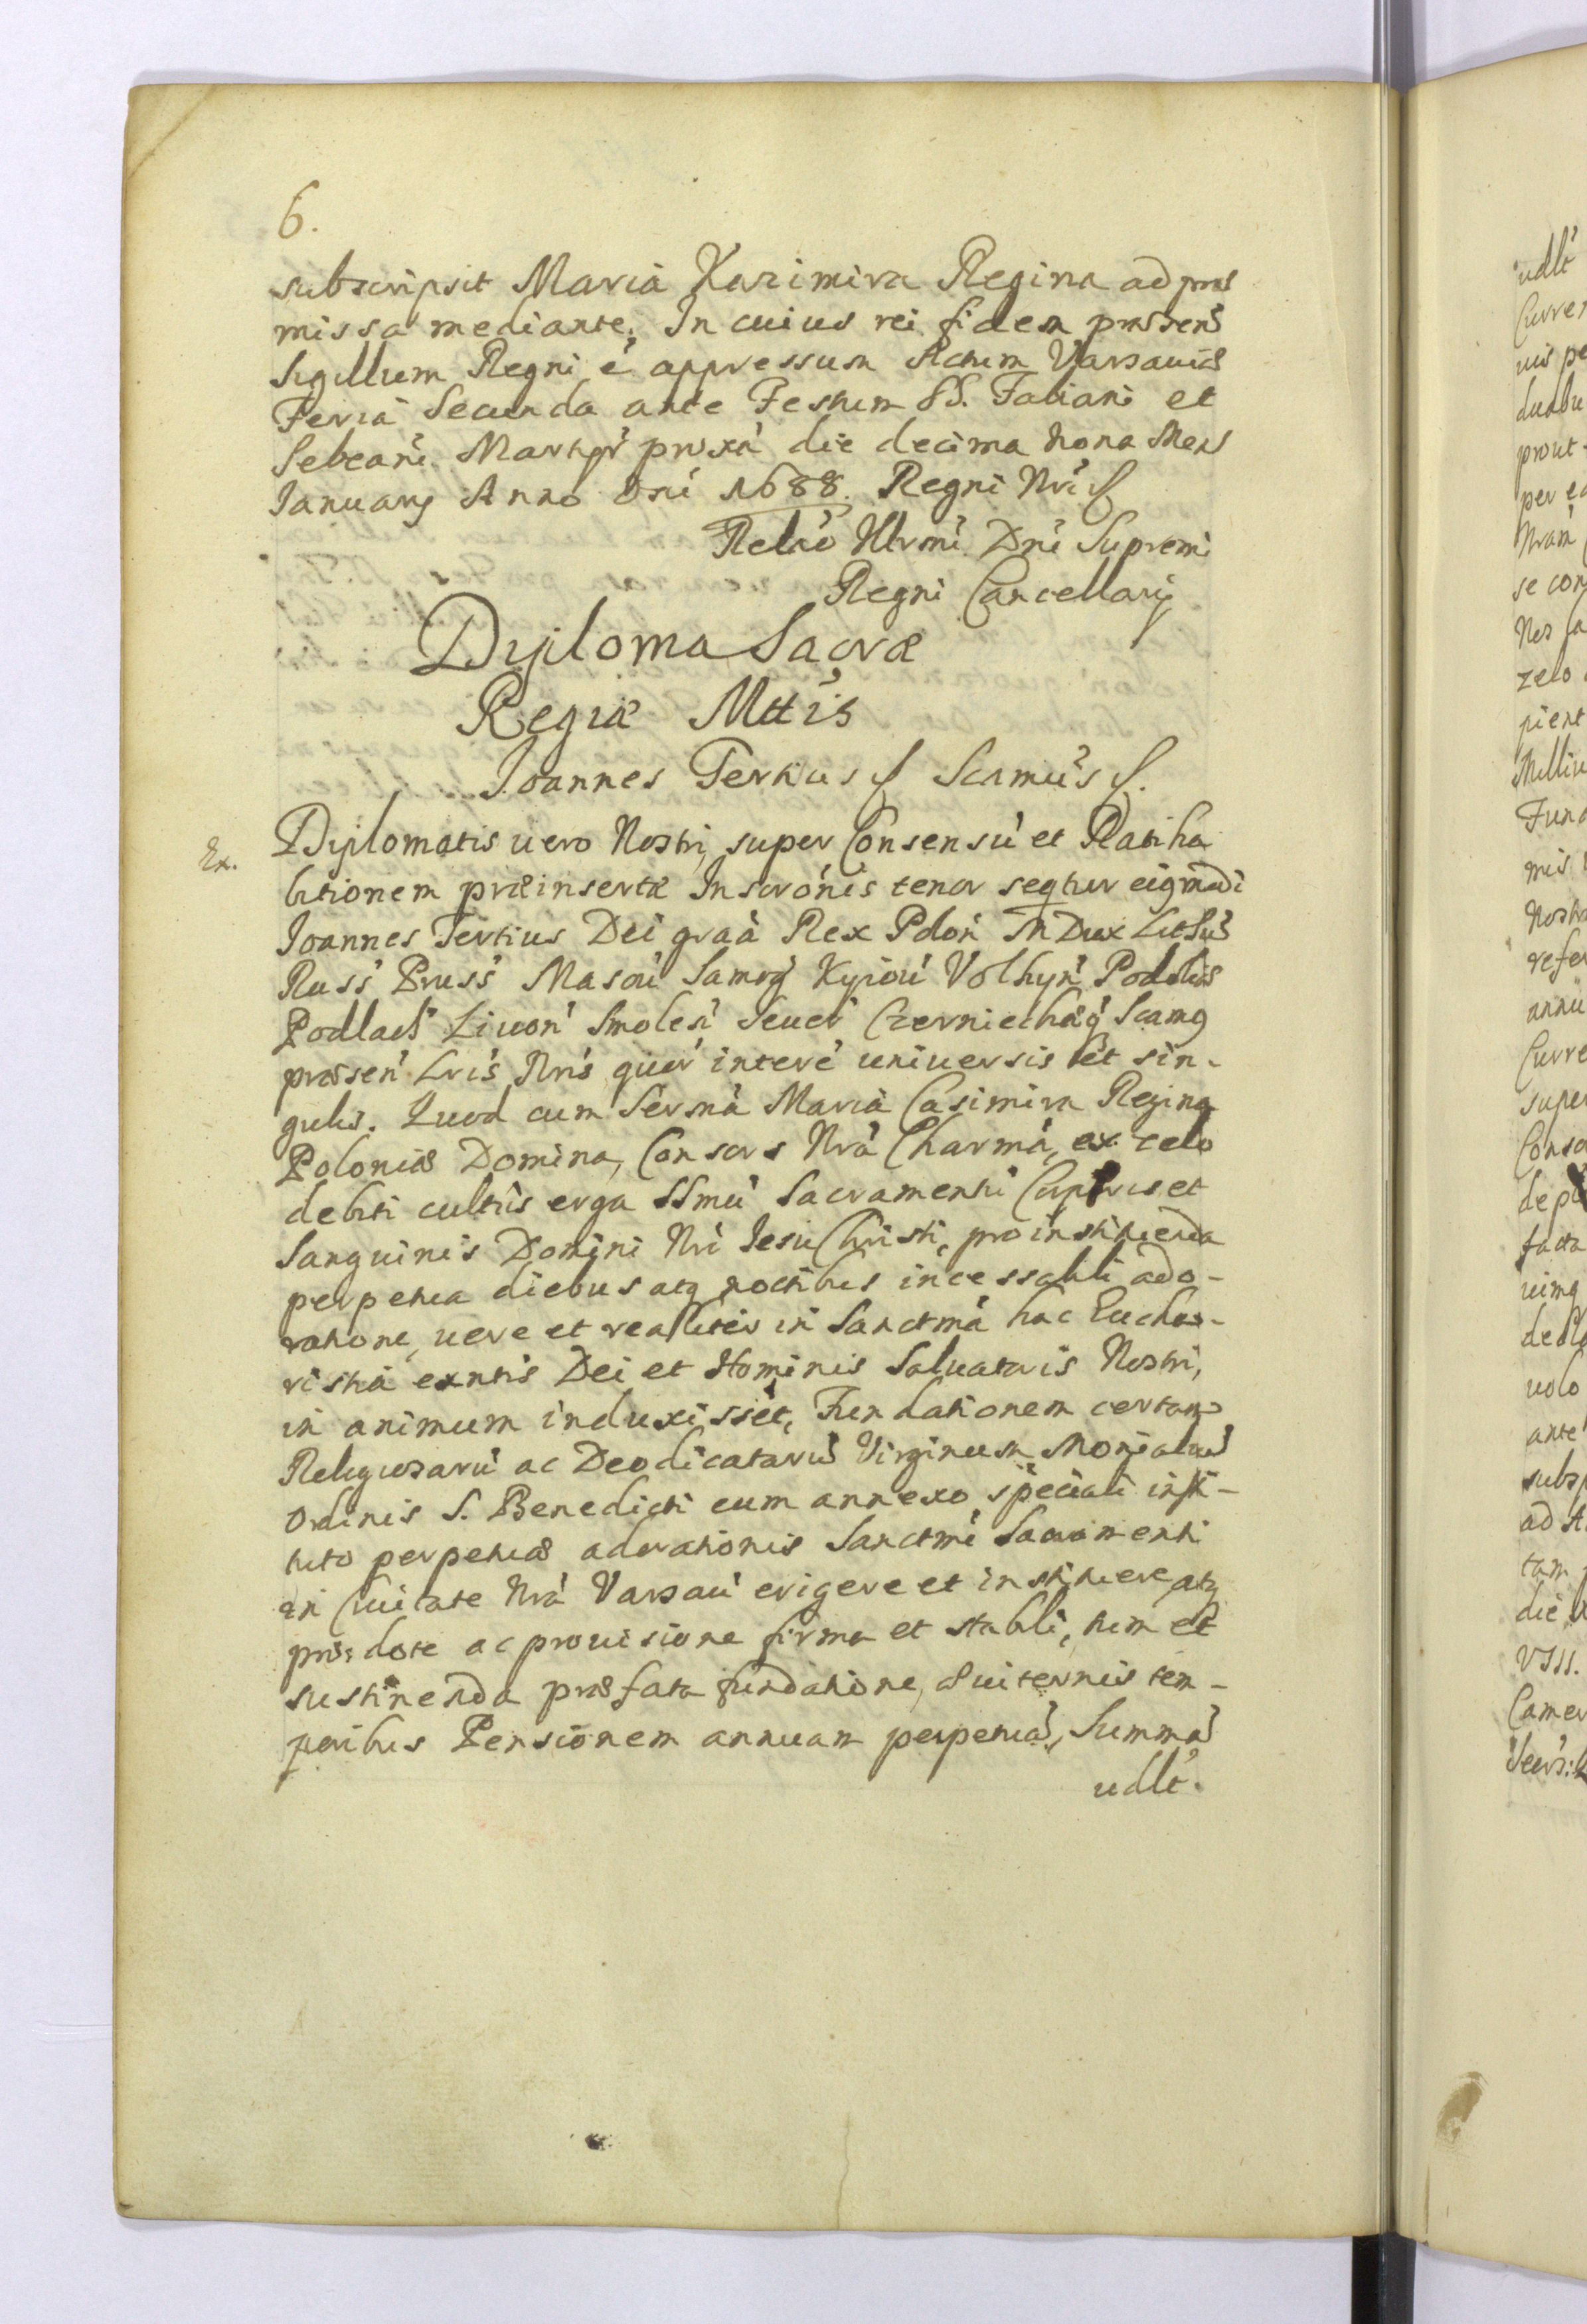 6.
subscripsit Maria Kazimira Regina ad præ
missa mediante. In cuius rei fidem præsens
Sigillum Regni é appressum Actum Varsauiæ
Feria Secunda ante Festum SS. Fabiani et
Sebeani Martyr proxa die decima nona Mens
Januarij Anno Dni 1688. Regni Nri
Relio Illrmi Dni Supremi
Regni Cancellarij
Dyploma Sacræ
Regiæ Mttis
Joannes Tertius Scamus
Ex. Dyplomatis uero Nostri, super Consensu et Ratiha
bitionem præinsertæ Inscronis tenor seqtur eiqmodi
Joannes Tertius Dei graa Rex Polon M Dux Lithu
Russ Pruss Masou Samog Kyiou Volhyn Podoliæ
Podlach Liuon Smolen Seuer Czerniechoq Scamg
præsen Lris Nris quor intere uniuersis et sin-
gulis. Quod cum Serma Maria Casimira Regina
Poloniæ Domina, Consors Nra Charma, ex zelo
debiti cultus erga SSmu Sacramenti Corporis et
Sanguinis Domini Nri Jesu Christi, pro instituenda
perpetua diebus atq noctibus incessabili ado-
ratione, uere et realiter in Sanctma hac Eucha-
ristia exntis Dei et Hominis Saluatoris Nostri,
in animum induxisset, Fundationem certam
Religiosaru ac Deodicataru Virginum Monialiu
Ordinis S. Benedicti cum annexo speciali insti-
tuto perpetuæ adorationis Sanctmi Sacramenti
in Ciuitate Nra Varsau erigere et instituere atq
pro dote ac prouisione firma et stabili, tum et
sustinenda præfata fundatione, æuiternis tem-
poribus Pensionem annuam perpetua, Summa
udlt.